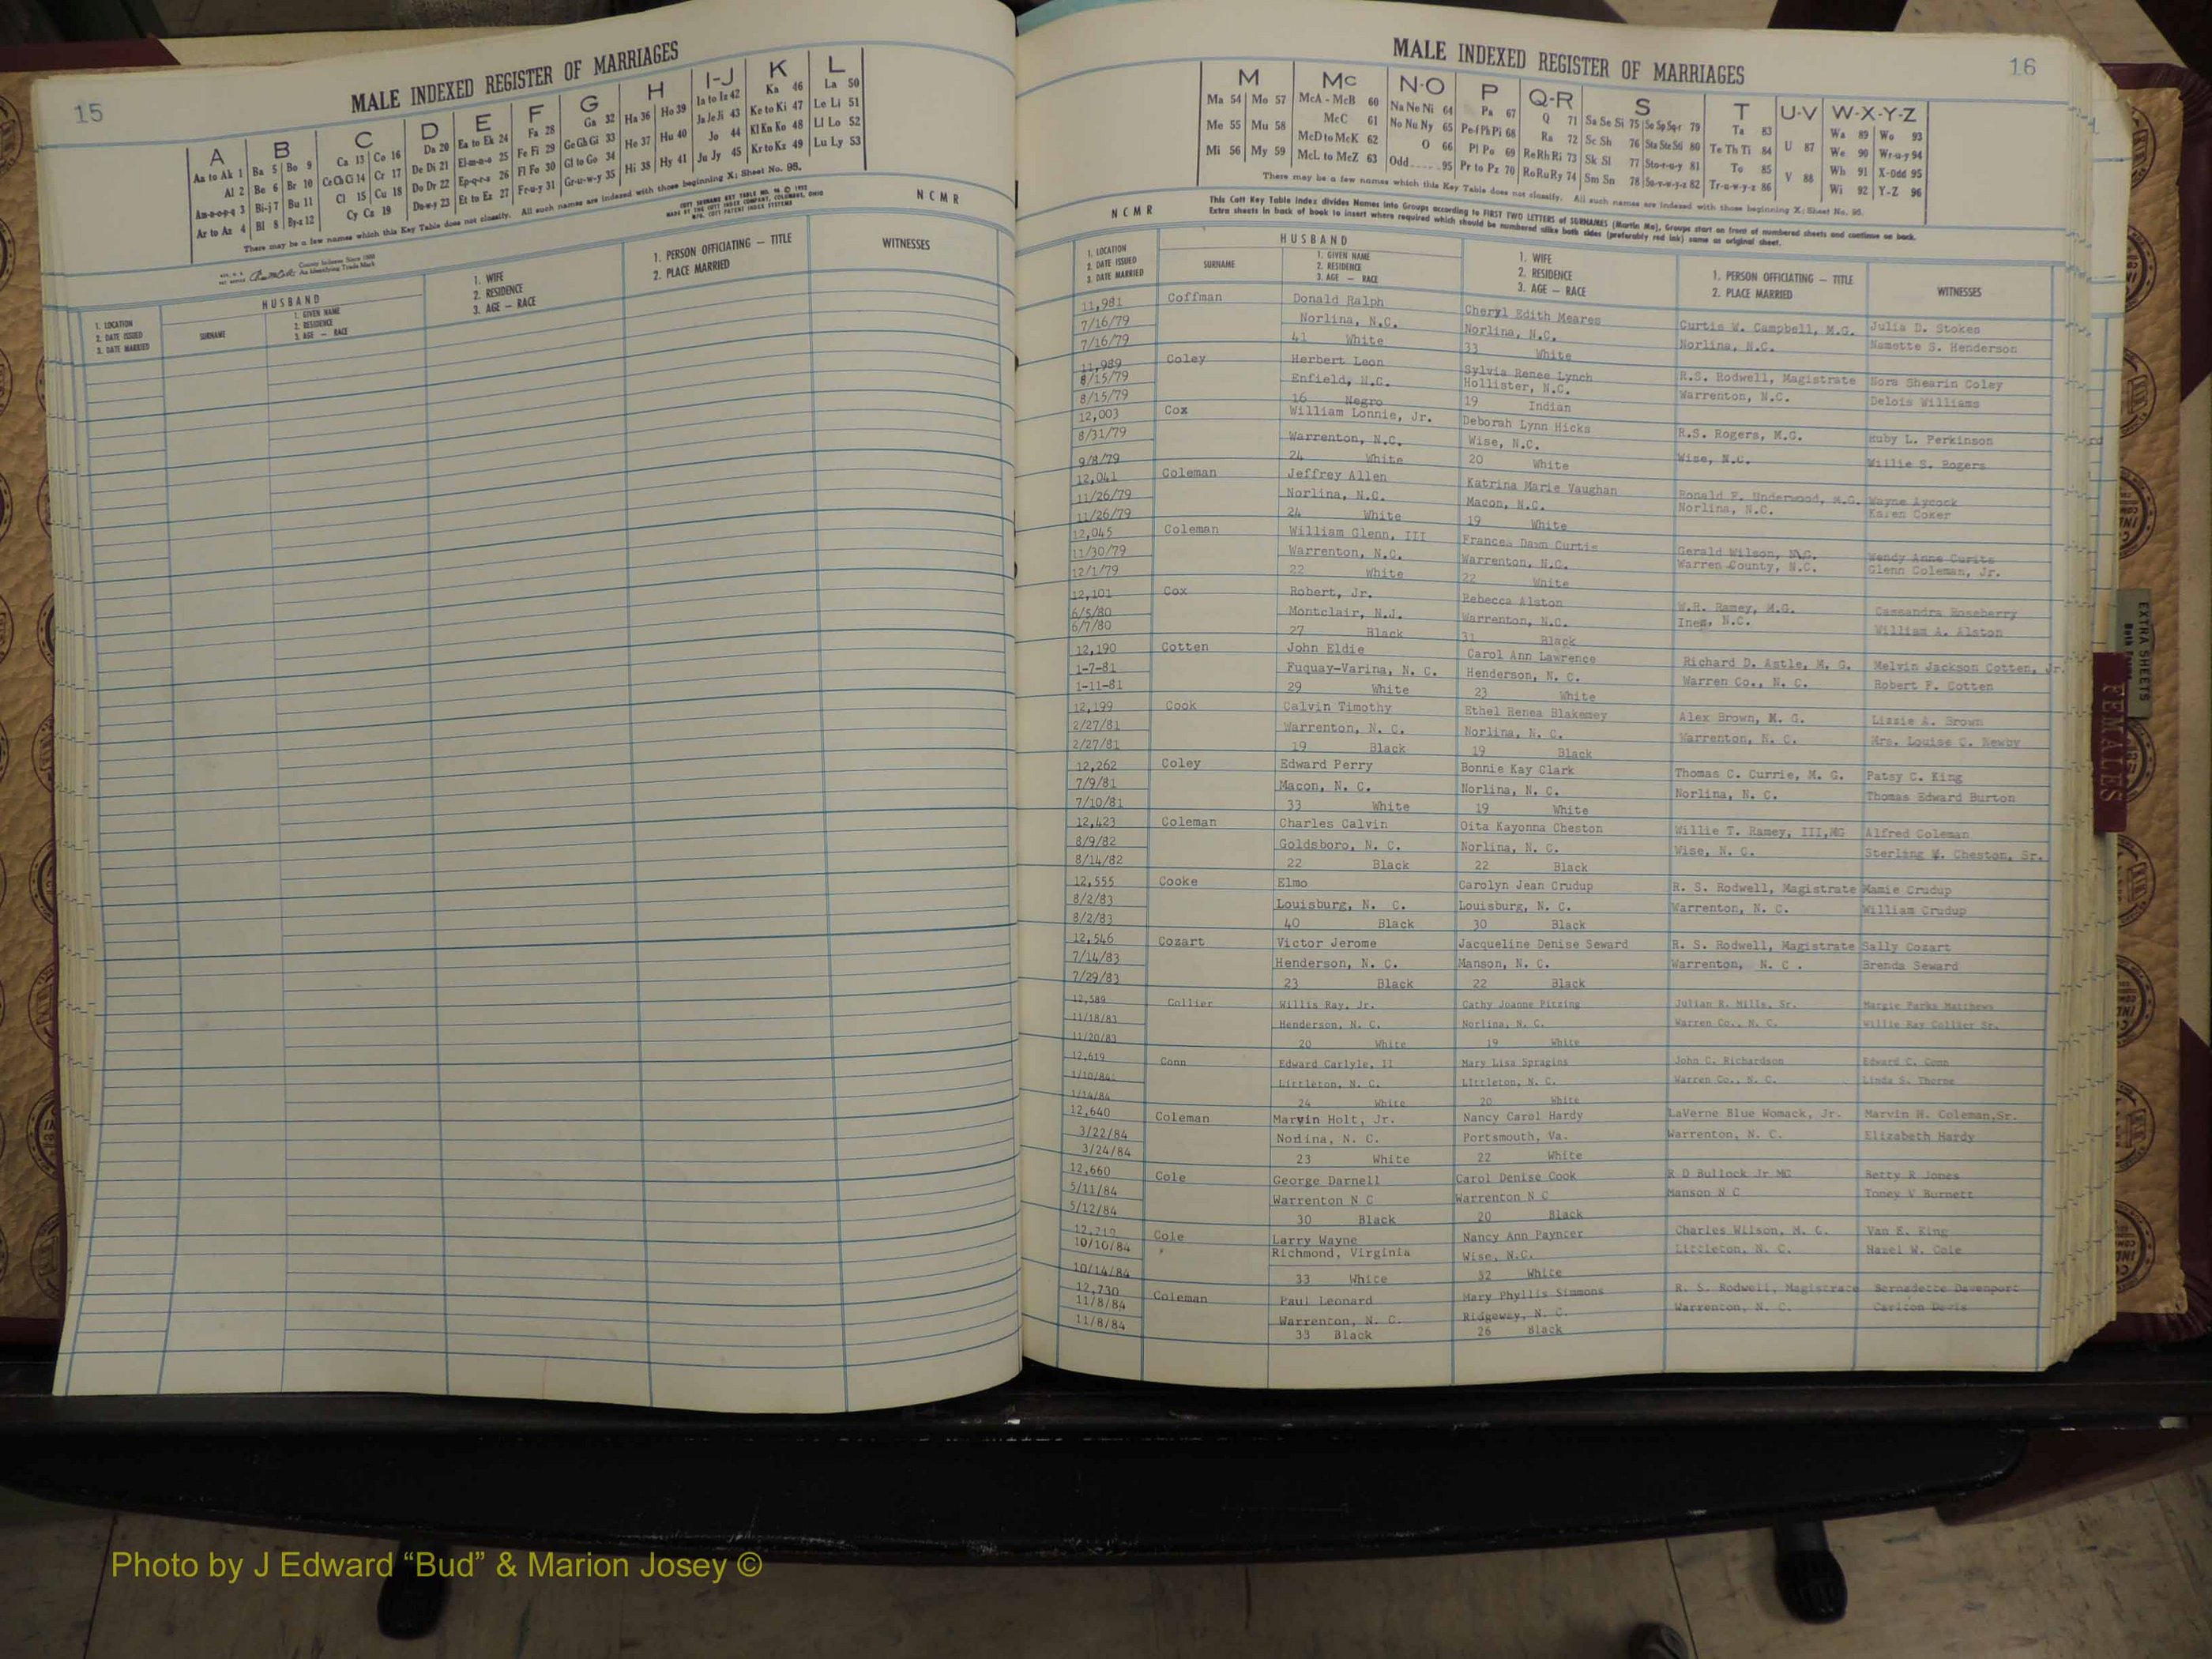 15
MALE INDEXED REGISTER OF MARRIAGES
A
Aa to Ak 1
Al 2
Am-n-o-p-q 3
Ar to Az 4
B
Ba 5 Bo 9
Be 6 Br 10
Bi-j 7 Bu 11
Bl 8 By-z 12
C
Ca 13 Co 16
Ce Ch Ci 14 Cr 17
Cl 15 Cu 18
Cy Cz 19
D
Da 20
De Di 21
Do Dr 22
Du-w-y 23
E
Ea to Ek 24
El-m-n-o 25
Ep-q-r-s 26
Et to Ez 27
F
Fa 28
Fe Fi 29
Fl Fo 30
Fr-u-y 31
G
Ga 32
Ge Gh Gi 33
Gl to Go 34
Gr-u-w-y 35
H
Ha 36 Ho 39
He 37 Hu 40
Hi 38 Hy 41
I-J
Ia to Iz 42
Ja Je Ji 43
Jo 44
Ju Jy 45
K
Ka 46
Ke to Ki 47
Kl Kn Ko 48
Kr to Kz 49
L
La 50
Le Li 51
Ll Lo 52
Lu Ly 53
There may be a few names which this Key Table does not classify. All such names are indexed with those beginning X; Sheet No. 95.
NCMR
HUSBAND
1. LOCATION
2. DATE ISSUED
3. DATE MARRIED
SURNAME
1. GIVEN NAME
2. RESIDENCE
3. AGE — RACE
1. WIFE
2. RESIDENCE
3. AGE — RACE
1. PERSON OFFICIATING — TITLE
2. PLACE MARRIED
WITNESSES
MALE INDEXED REGISTER OF MARRIAGES
16
M
Ma 54 Mo 57
Me 55 Mu 58
Mi 56 My 59
Mc
McA - McB 60
McC 61
McD to McK 62
McL to McZ 63
N-O
Na Ne Ni 64
No Nu Ny 65
O 66
Odd 95
P
Pa 67
Pe-f Ph Pi 68
Pl Po 69
Pr to Pz 70
Q-R
Q 71
Ra 72
Re Rh Ri 73
Ro Ru Ry 74
S
Sa Se Si 75 So Sp Sq-r 79
Sc Sh 76 Sta Ste Sti 80
Sk Sl 77 Sto-r-u-y 81
Sm Sn 78 Su-v-w-y-z 82
T
Ta 83
Te Th Ti 84
To 85
Tr-u-w-y-z 86
U-V
U 87
V 88
W-X-Y-Z
Wa 89 Wo 93
We 90 Wr-u-y 94
Wh 91 X-Odd 95
Wi 92 Y-Z 96
There may be a few names which this Key Table does not classify. All such names are indexed with those beginning X; Sheet No. 95.
This Cott Key Table Index divides Names into Groups according to FIRST TWO LETTERS of SURNAMES (Martin Ma), Groups start on front of numbered sheets and continue on back.
Extra sheets in back of book to insert where required which should be numbered alike both sides (preferably red ink) same as original sheet.
NCMR
HUSBAND
1. LOCATION
2. DATE ISSUED
3. DATE MARRIED
SURNAME
1. GIVEN NAME
2. RESIDENCE
3. AGE — RACE
1. WIFE
2. RESIDENCE
3. AGE — RACE
1. PERSON OFFICIATING — TITLE
2. PLACE MARRIED
WITNESSES
11,981 Coffman Donald Ralph Cheryl Edith Meares Curtis W. Campbell, M.G. Julia D. Stokes
7/16/79 Norlina, N.C. Norlina, N.C. Norlina, N.C. Nanette S. Henderson
7/16/79 41 White 33 White
11,989 Coley Herbert Leon Sylvia Renee Lynch R.S. Rodwell, Magistrate Nora Shearin Coley
8/15/79 Enfield, N.C. Hollister, N.C. Warrenton, N.C. Delois Williams
8/15/79 16 Negro 19 Indian
12,003 Cox William Lonnie, Jr. Deborah Lynn Hicks R.S. Rogers, M.G. Ruby L. Perkinson
8/31/79 Warrenton, N.C. Wise, N.C. Wise, N.C. Willie S. Rogers
9/8/79 24 White 20 White
12,041 Coleman Jeffrey Allen Katrina Marie Vaughan Ronald F. Underwood, M.G. Wayne Aycock
11/26/79 Norlina, N.C. Macon, N.C. Norlina, N.C. Karen Coker
11/26/79 24 White 19 White
12,045 Coleman William Glenn, III Frances Dawn Curtis Gerald Wilson, M.G. Wendy Anne Curits
11/30/79 Warrenton, N.C. Warrenton, N.C. Warren County, N.C. Glenn Coleman, Jr.
12/1/79 22 White 22 White
12,101 Cox Robert, Jr. Rebecca Alston W.R. Ramey, M.G. Cassandra Roseberry
6/5/80 Montclair, N.J. Warrenton, N.C. Inez, N.C. William A. Alston
6/7/80 27 Black 31 Black
12,190 Cotten John Eldie Carol Ann Lawrence Richard D. Astle, M. G. Melvin Jackson Cotten, Jr.
1-7-81 Fuquay-Varina, N. C. Henderson, N. C. Warren Co., N. C. Robert F. Cotten
1-11-81 29 White 23 White
12,199 Cook Calvin Timothy Ethel Renea Blakemey Alex Brown, M. G. Lizzie A. Brown
2/27/81 Warrenton, N. C. Norlina, N. C. Warrenton, N. C. Mrs. Louise C. Newby
2/27/81 19 Black 19 Black
12,262 Coley Edward Perry Bonnie Kay Clark Thomas C. Currie, M. G. Patsy C. King
7/9/81 Macon, N. C. Norlina, N. C. Norlina, N. C. Thomas Edward Burton
7/10/81 33 White 19 White
12,423 Coleman Charles Calvin Oita Kayonna Cheston Willie T. Ramey, III,MG Alfred Coleman
8/9/82 Goldsboro, N. C. Norlina, N. C. Wise, N. C. Sterling W. Cheston, Sr.
8/14/82 22 Black 22 Black
12,555 Cooke Elmo Carolyn Jean Crudup R. S. Rodwell, Magistrate Mamie Crudup
8/2/83 Louisburg, N. C. Louisburg, N. C. Warrenton, N. C. William Crudup
8/2/83 40 Black 30 Black
12,546 Cozart Victor Jerome Jacqueline Denise Seward R. S. Rodwell, Magistrate Sally Cozart
7/14/83 Henderson, N. C. Manson, N. C. Warrenton, N. C . Brenda Seward
7/29/83 23 Black 22 Black
12,589 Collier Willis Ray, Jr. Cathy Joanne Pitzing Julian R. Mills, Sr. Margie Parks Matthews
11/18/83 Henderson, N. C. Norlina, N. C. Warren Co., N. C. Willie Ray Collier Sr.
11/20/83 20 White 19 White
12,619 Conn Edward Carlyle, II Mary Lisa Spragins John C. Richardson Edward C. Conn
1/10/84 Littleton, N. C. Littleton, N. C. Warren Co., N. C. Linda S. Thorne
1/14/84 24 White 20 White
12,640 Coleman Marvin Holt, Jr. Nancy Carol Hardy LaVerne Blue Womack, Jr. Marvin H. Coleman,Sr.
3/22/84 Norlina, N. C. Portsmouth, Va. Warrenton, N. C. Elizabeth Hardy
3/24/84 23 White 22 White
12,660 Cole George Darnell Carol Denise Cook R D Bullock Jr MG Betty R Jones
5/11/84 Warrenton N C Warrenton N C Manson N C Toney V Burnett
5/12/84 30 Black 20 Black
Cole Larry Wayne Nancy Ann Paynter Charles Wilson, M. G. Van E. King
10/10/84 Richmond, Virginia Wise, N.C. Littleton, N. C. Hazel W. Cole
10/14/84 33 White 32 White
12,730 Coleman Paul Leonard Mary Phyllis Simmons R. S. Rodwell, Magistrate Bernadette Davenport
11/8/84 Warrenton, N. C. Ridgeway, N. C. Warrenton, N. C. Carlton Davis
11/8/84 33 Black 26 Black
EXTRA SHEETS
FEMALES
Photo by J Edward “Bud” & Marion Josey ©